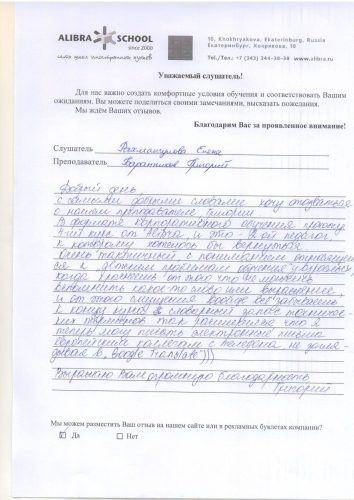 ALIBRA SCHOOL
since 2000
10, Khokhryakova, Ekaterinburg, Russia
Екатеринбург, Хохрякова, 10
Tel./Тел.: +7 (343) 344-38-38 www.alibra.ru
Уважаемый слушатель!
Для нас важно создать комфортные условия обучения и соответствовать Вашим
ожиданиям. Вы можете поделиться своими замечаниями, высказать пожелания.
Мы ждём Ваших отзывов.
Благодарим Вас за проявленное внимание!
Слушатель Рахманкулова Елена
Преподаватель Григорий
Добрый день,
с большими добрыми словами хочу отозваться
о нашем преподавателе Григории
В формате корпоративного обучения прохожу
курс от "Alibra", и это ой педагог,
к которому хотелось бы вернуться
Очень тактичный, с пониманием относящийся
ся к проблемам обучения ,
когда краснеешь от того что не можешь
вспомнить какое-то слово или выражение,
и от этого смущения вообще все забываешь
К концу курса словарный запас технических
терминов так расширился что я
теперь могу писать ежедневные письма
европейским коллегам с телефона, не загля
дывая в "Google Translate")))
Выражаю Вам огромную благодарность
Григорий
Мы можем разместить Ваш отзыв на нашем сайте или в рекламных буклетах компании?
Да Нет